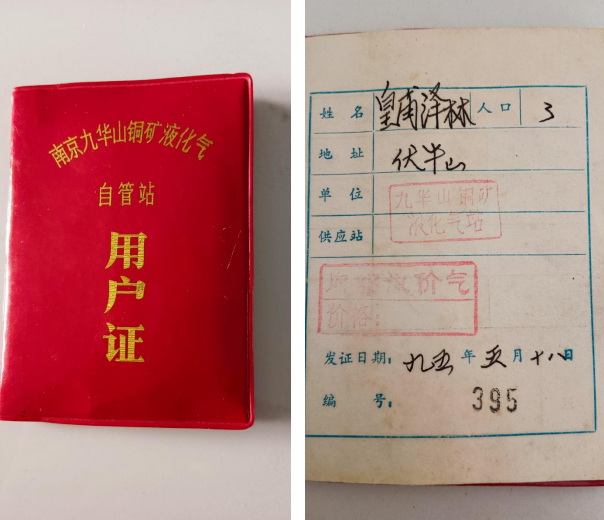 南京九华山铜矿液化气
自管站
用户证
姓名 皇甫泽林 人口 3
地址 伏牛山
单位 九华山铜矿
液化气站
供应站
价气
价格:
发证日期: 九五年五月十八日
编号: 395